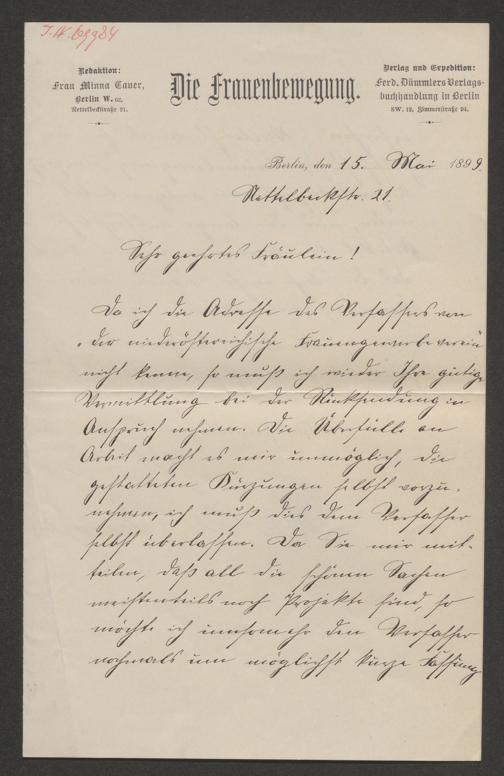 J.N. 69984
Redaktion:
Frau Minna Cauer,
Berlin W. 62.
Nettelbeckstraße 21.
Die Frauenbewegung.
Verlag und Expedition:
Ferd. Dümmlers Verlags-
buchhandlung in Berlin
SW. 12, Zimmerstraße 94.
Berlin, den 15. Mai 1899.
Nettelbeckstr. 21.
Sehr geehrtes Fräulein!
Da ich die Adresse des Verfassers von
„der niederösterreichische Frauengewerbeverein"
nicht kenne, so muß ich wieder Ihre gütige
Vermittlung bei der Rücksendung in
Anspruch nehmen. Die Überfülle an
Arbeit macht es mir unmöglich, die
gestatteten Kürzungen selbst vorzu-
nehmen, ich muß dies dem Verfasser
selbst überlassen. Da Sie mir mit-
teilen, daß all die schönen Sachen
meistenteils noch Projekte sind, so
möchte ich umsomehr den Verfasser
nochmals um möglichst kurze Fassung